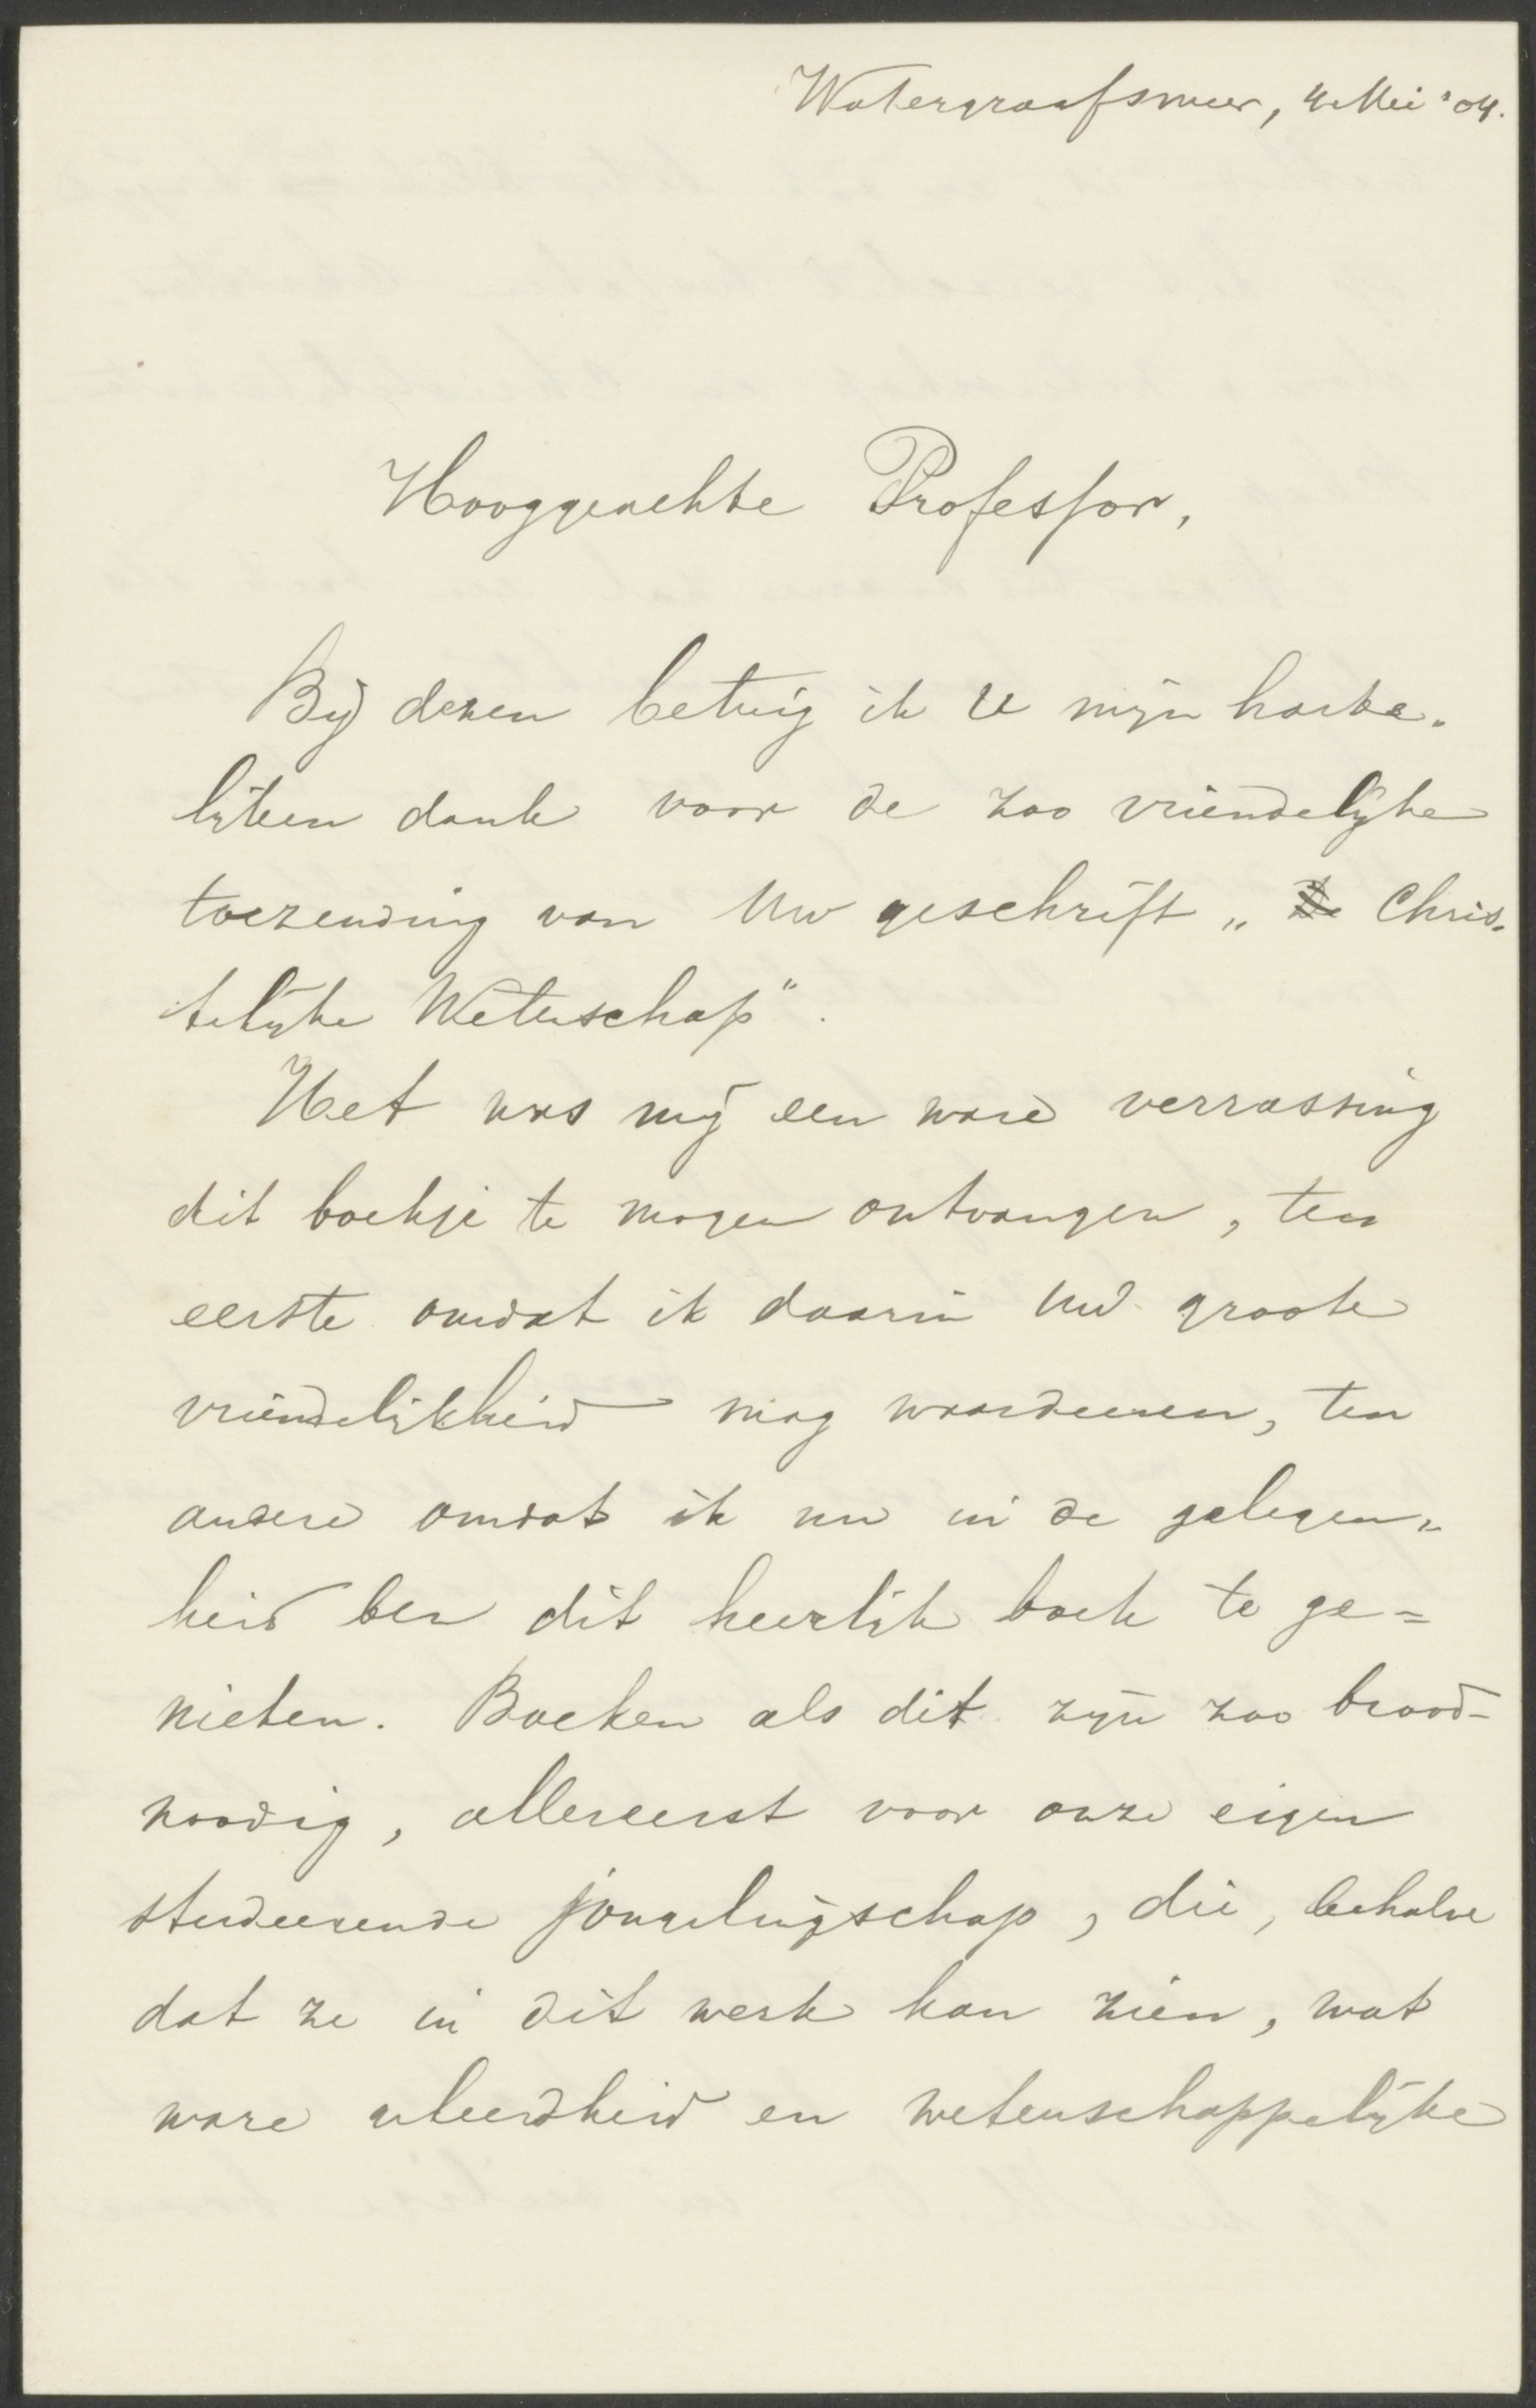 Watergraafsmeer, 4 Mei '04.
Hooggeachte Professor,
Bij dezen betuig ik U mijn harte-
lijken dank voor de zoo vriendelijke
toezending van Uw geschrift „ De Chris-
telijke Wetenschap".
Het was mij een ware verrassing
dit boekje te mogen ontvangen, ten
eerste omdat ik daarin Uwd groote
vriendelijkheid mag waardeeren, ten
andere omdat ik nu in de gelegen-
heid ben dit heerlijk boek te ge=
nieten. Boeken als dit zijn zoo brood-
noodig, allereerst voor onze eigen
studeerende jongelingschap, die, behalve
dat ze in dit werk kan zien, wat
ware geleerdheid en wetenschappelijke